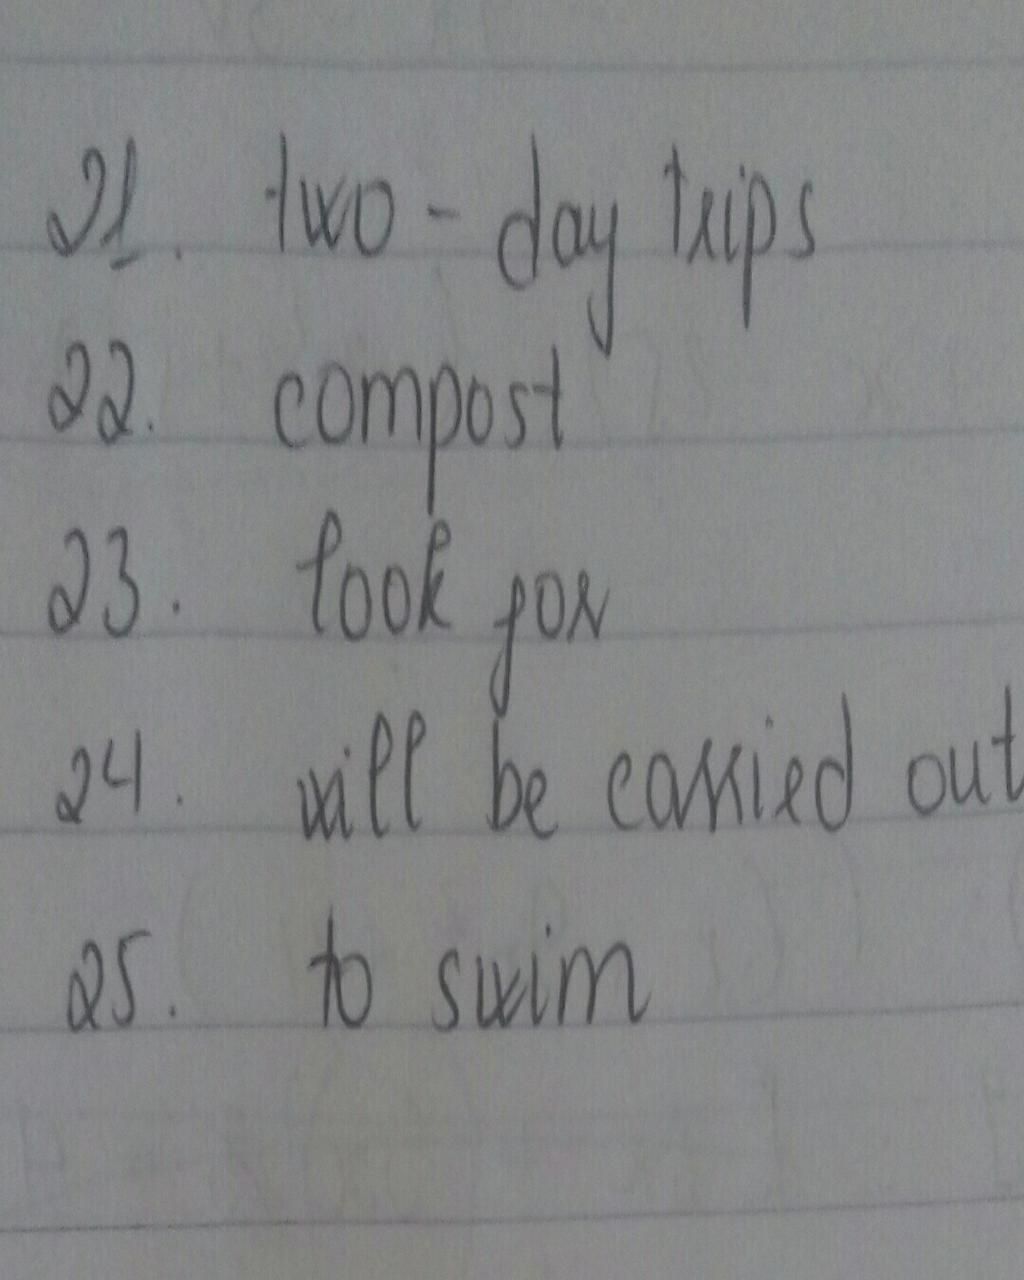 21. two - day trips
22. compost
23. look for
24. will be carried out
25. to swim